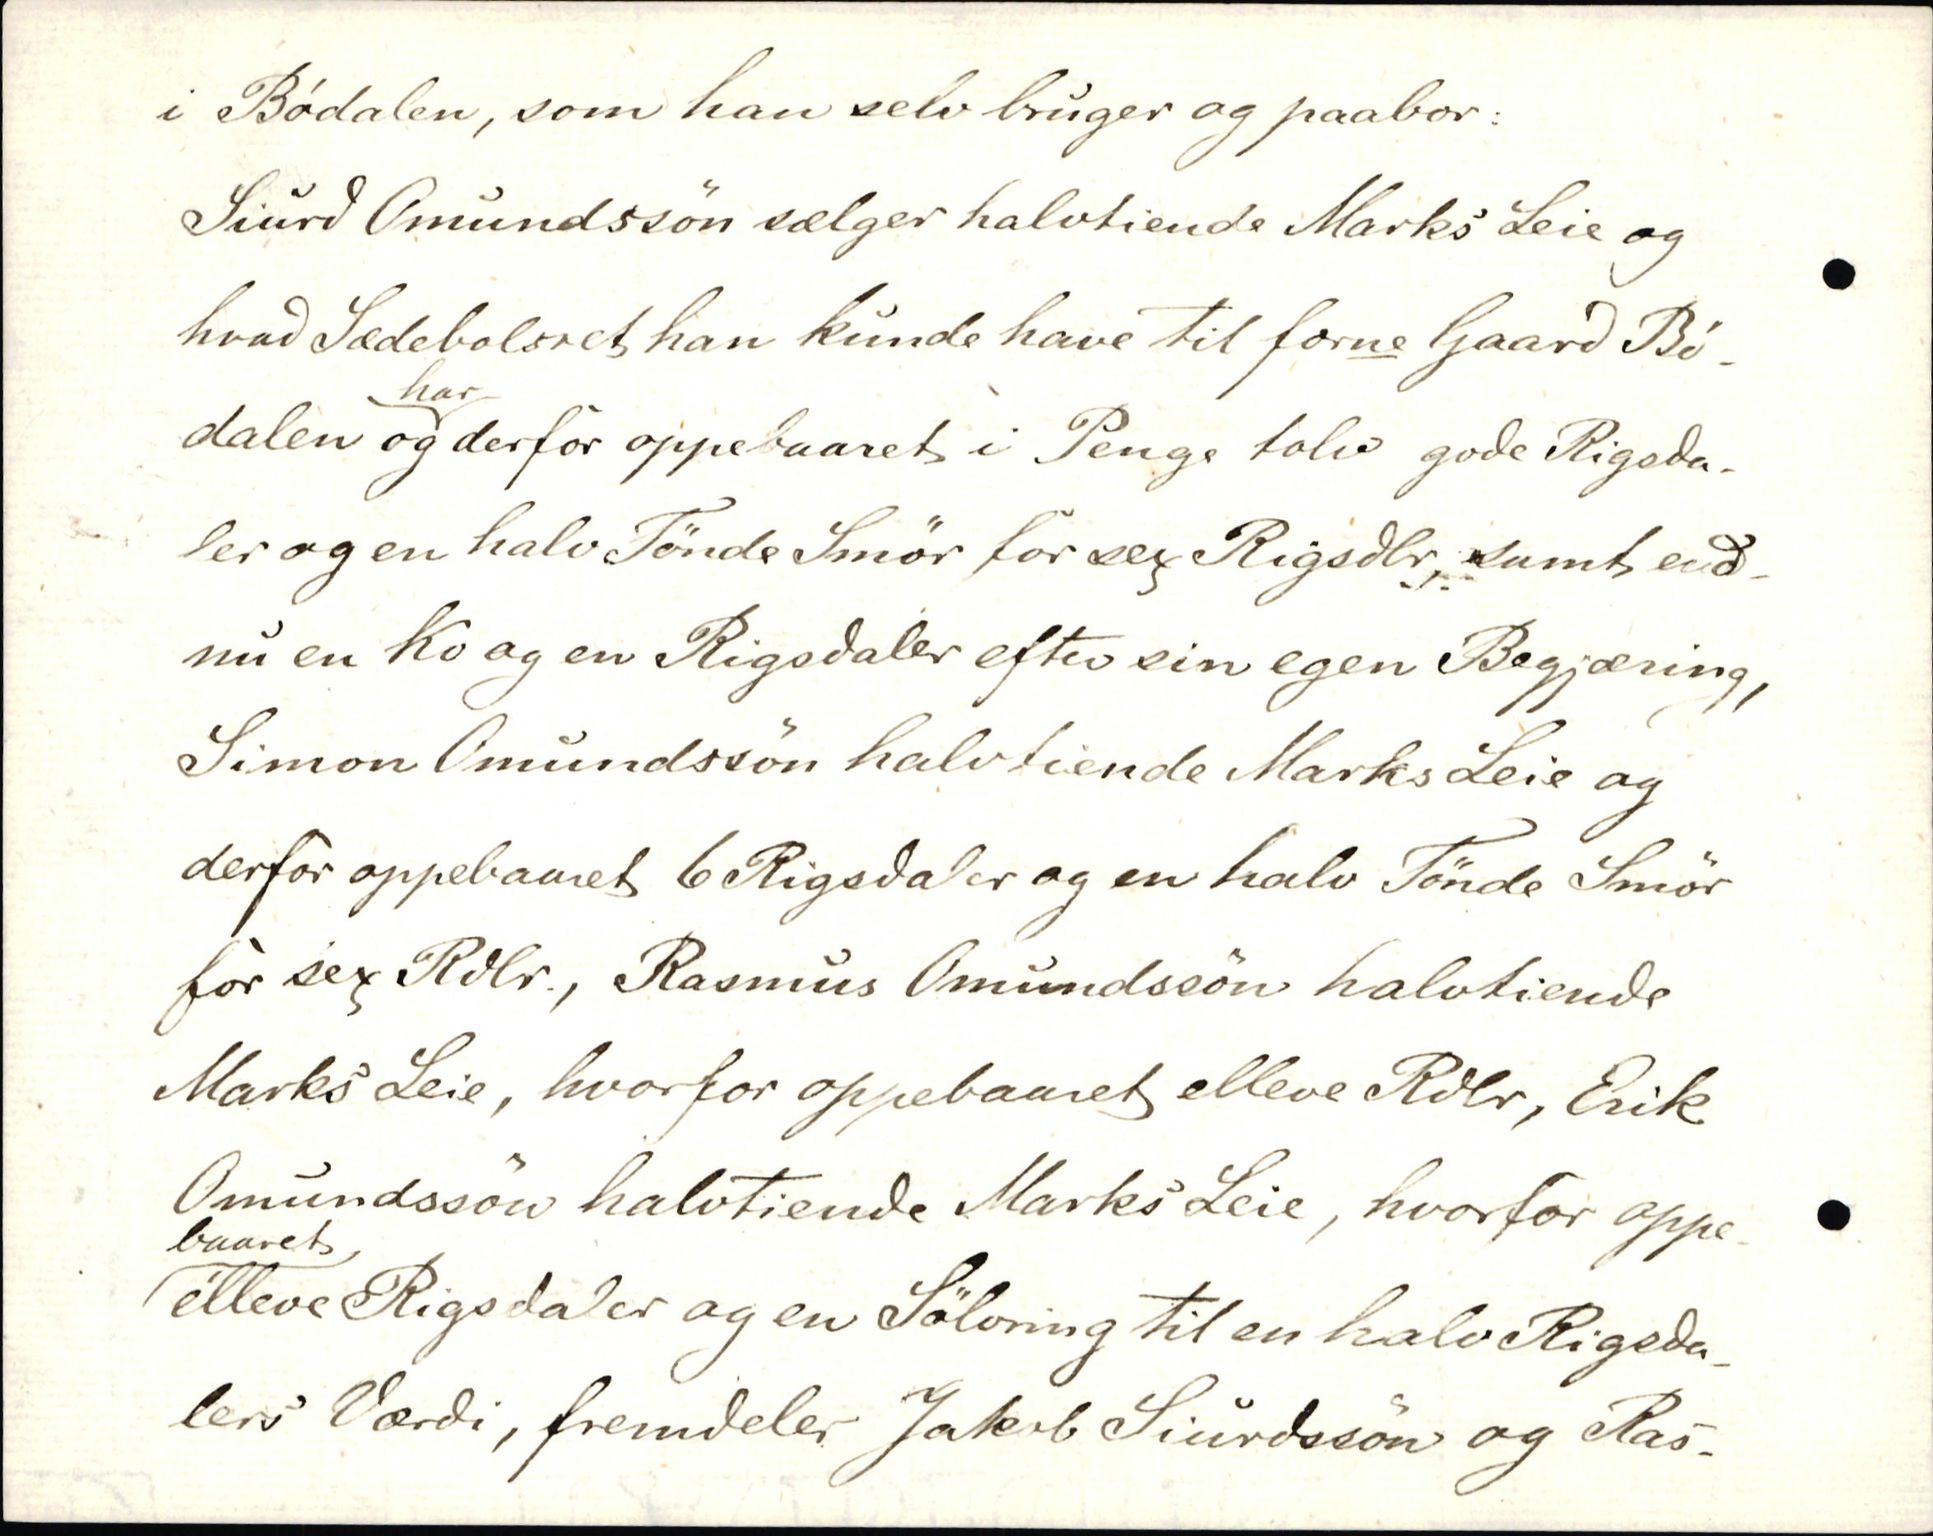 i Bødalen, som han selv bruger og paabor:
Siurd Omundssön sælger halvtiende Marks Leie og
hvad Sædebolsret han kunde have til forne Gaard Bø-
har
dalen og derfor oppebaaret i Penge tolv gode Rigsda-
ler og en halv Tönde Smör for sex Rigsdlr, samt end-
nu en Ko og en Rigsdaler efter sin egen Begjæring,
Simon Omundssön halvtiende Marks Leie og
derfor oppebaaret 6 Rigsdaler og en halv Tönde Smör
for sex Rdlr., Rasmus Omundssön halvtiende
Marks Leie, hvorfor oppebaaret elleve Rdlr, Erik
Omundssön halvtiende Marks Leie, hvorfor oppe-
baaret
elleve Rigsdaler og en Sölvring til en halv Rigsda-
lers Værdi, fremdeles Jakob Siurdssön og Ras-